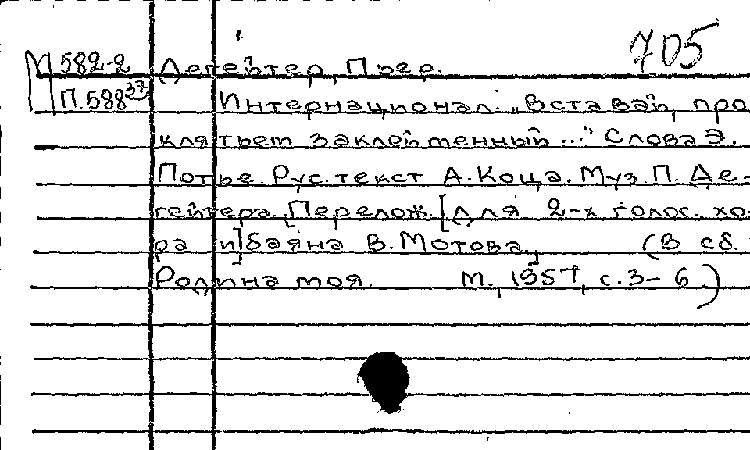 705
М 582-2 Дегейтер, Пьер.
П.588 37 Интернационал. „Вставай, про
клятьем заклейменный..." Слова Э.
Потье. Рус. текст А. Коца. Муз. П. Де-
гейтера. [Перелож. [для 2-х голос. хо-
ра и] баяна В. Мотова. (В сб.
Родина моя. М., 1957, с. 3-6.)